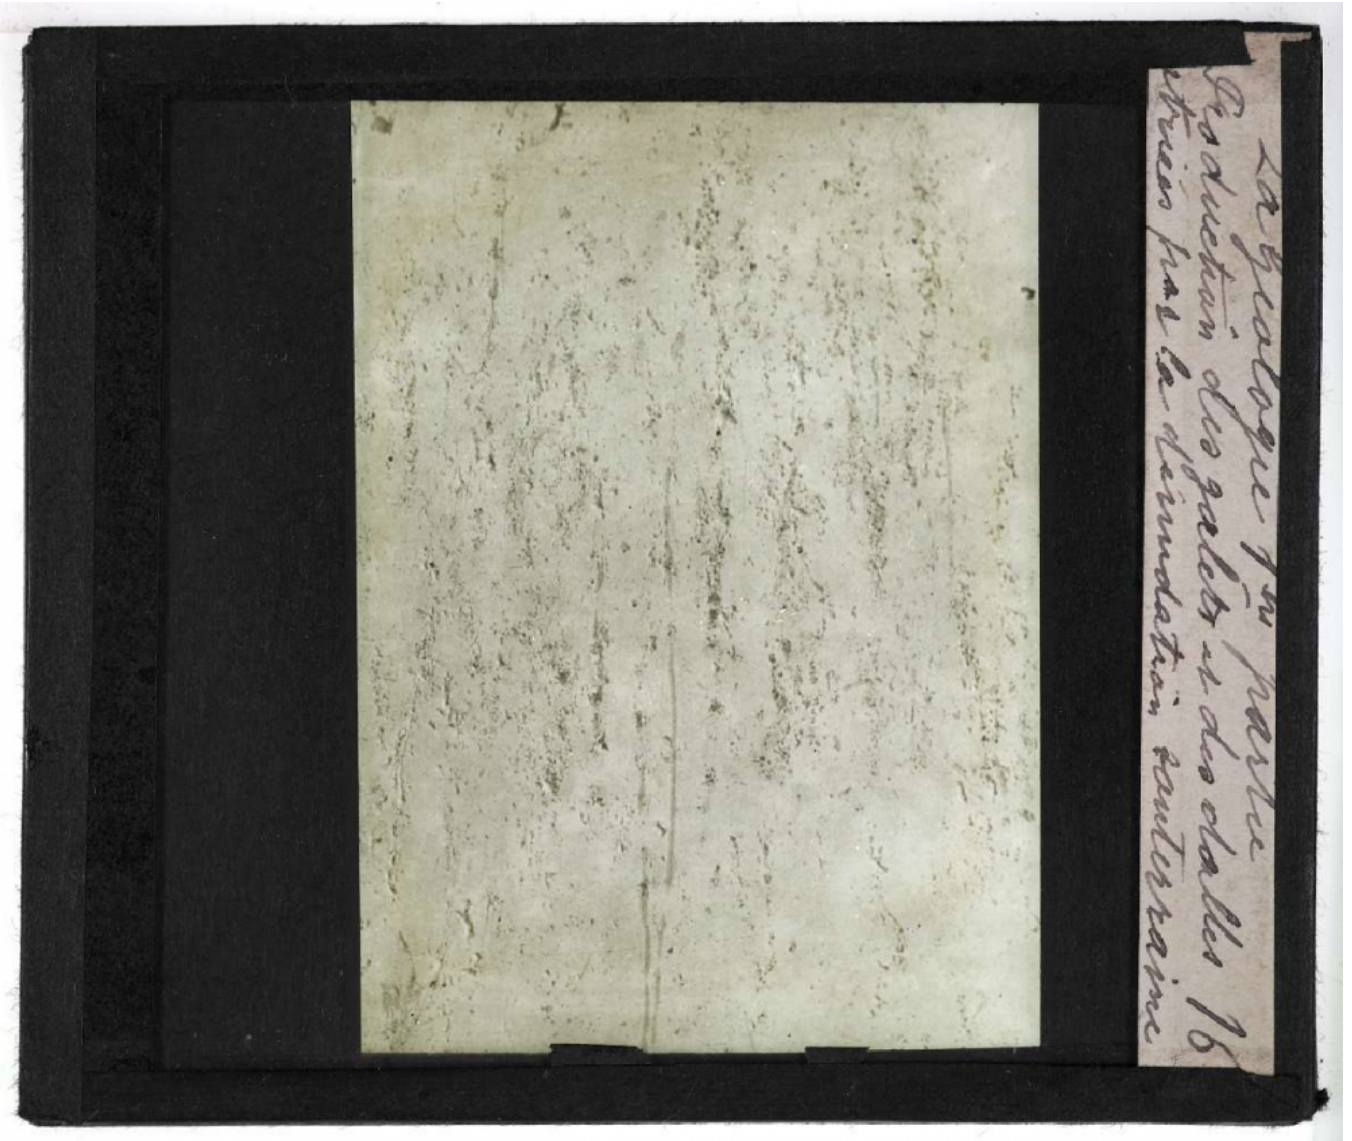 La géologie 1re partie
Production des galets et des dalles 76
striées par la dénudation souterraine